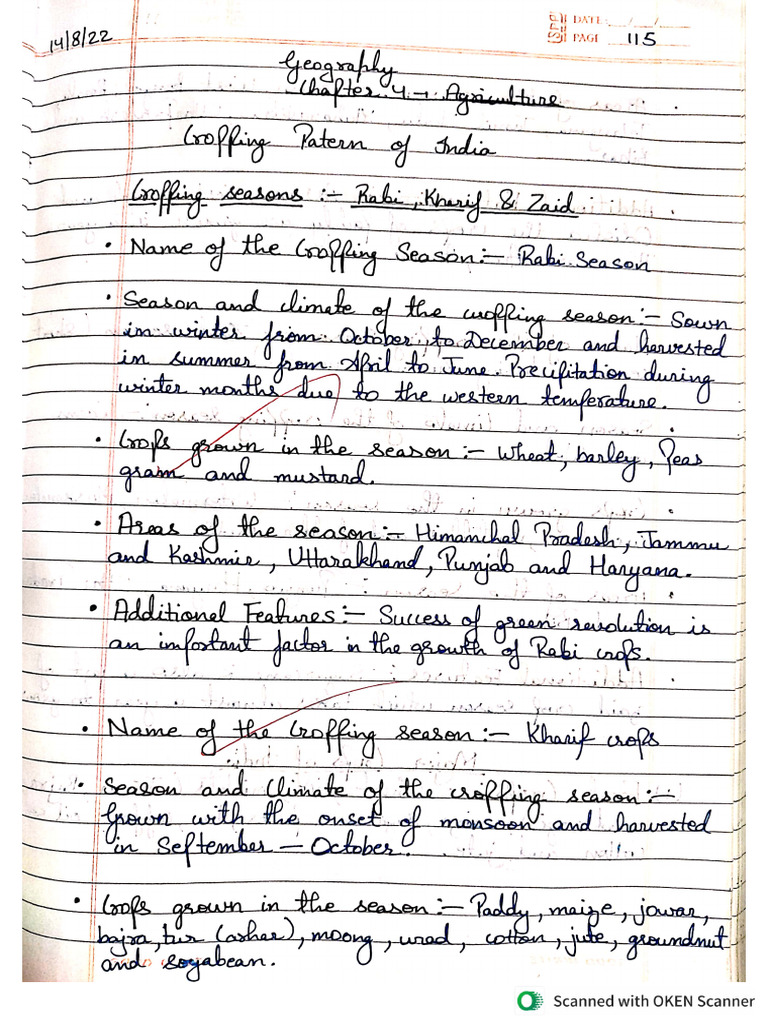 14/8/22
DATE: __/__/__
PAGE 115
Geography
Chapter 4 → Agriculture
Cropping Patern of India
Cropping seasons :- Rabi, Kharif & Zaid
• Name of the Cropping Season:- Rabi Season
• Season and climate of the cropping season:- Sown
in winter from October to December and harvested
in summer from April to June. Precipitation during
winter months due to the western temperature.
• Crops grown in the season:- Wheat, barley, Peas
gram and mustard.
• Areas of the season:- Himanchal Pradesh, Jammu
and Kashmir, Uttarakhand, Punjab and Haryana.
• Additional Features:- Success of green revolution is
an important factor in the growth of Rabi crops.
• Name of the Cropping season:- Kharif crops
• Season and Climate of the cropping season:-
Grown with the onset of monsoon and harvested
in September - October.
• Crops grown in the season:- Paddy, maize, jowar,
bajra, tur (arhar), moong, urad, cotton, jute, groundnut
and soyabean.
Scanned with OKEN Scanner